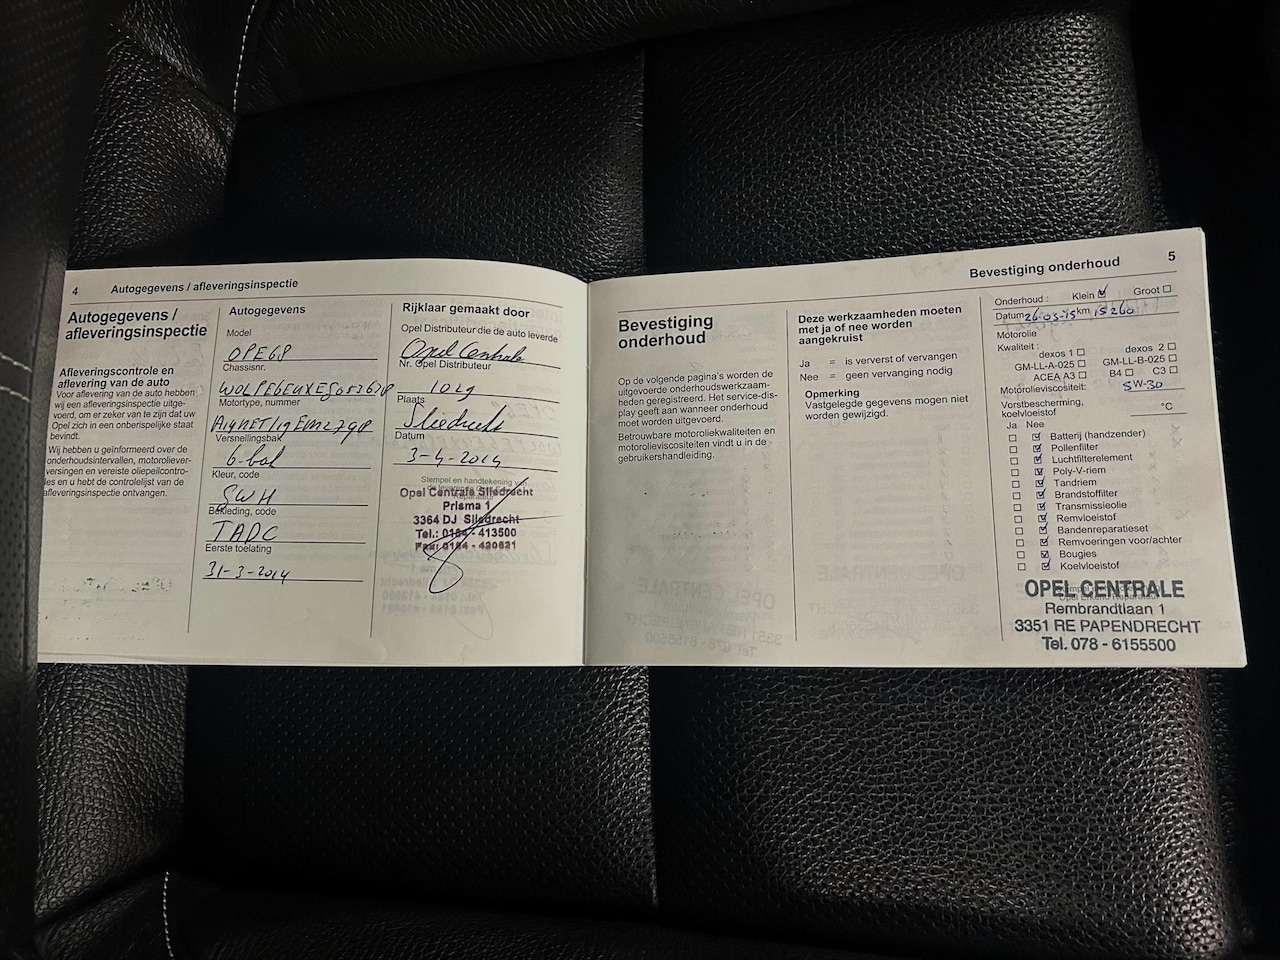 4 Autogegevens / afleveringsinspectie
Autogegevens /
afleveringsinspectie
Aflevering​scontrole en
aflevering van de auto
Voor aflevering van de auto hebben
wij een afleveringsinspectie uitge-
voerd, om er zeker van te zijn dat uw
Opel zich in een onberispelijke staat
bevindt.
Wij hebben u geïnformeerd over de
onderhoudsintervallen, motoroliever-
versingen en vereiste oliepeilcontro-
les en u hebt de controlelijst van de
afleveringsinspectie ontvangen.
Autogegevens
Model
OPE68
Chassisnr.
Motortype, nummer
Versnellingsbak
6-bak
Kleur, code
GWH
Bekleding, code
TADC
Eerste toelating
31-3-2014
Rijklaar gemaakt door
Opel Distributeur die de auto leverde
Opel Centrale
Nr. Opel Distributeur
1029
Plaats
Sliedrecht
Datum
3-4-2014
Stempel en handtekening van
Opel Centrale Sliedrecht
Prisma 1
3364 DJ Sliedrecht
Tel.: 0184 - 413500
Fax: 0184 - 420621
Bevestiging onderhoud 5
Bevestiging
onderhoud
Op de volgende pagina's worden de
uitgevoerde onderhoudswerkzaam-
heden geregistreerd. Het service-dis-
play geeft aan wanneer onderhoud
moet worden uitgevoerd.
Betrouwbare motoroliekwaliteiten en
motorolieviscositeiten vindt u in de
gebruikershandleiding.
Deze werkzaamheden moeten
met ja of nee worden
aangekruist
Ja = is ververst of vervangen
Nee = geen vervanging nodig
Opmerking
Vastgelegde gegevens mogen niet
worden gewijzigd.
Onderhoud : Klein Groot
Datum 26-03-15 km 15260
Motorolie
Kwaliteit :
dexos 1 dexos 2
GM-LL-A-025 GM-LL-B-025
ACEA A3 B4 C3
Motorolieviscositeit: 5W-30
Vorstbescherming,
koelvloeistof °C
Ja Nee
Batterij (handzender)
Pollenfilter
Luchtfilterelement
Poly-V-riem
Tandriem
Brandstoffilter
Transmissieolie
Remvloeistof
Bandenreparatieset
Remvoeringen voor/achter
Bougies
Koelvloeistof
OPEL CENTRALE
Rembrandtlaan 1
3351 RE PAPENDRECHT
Tel. 078 - 6155500